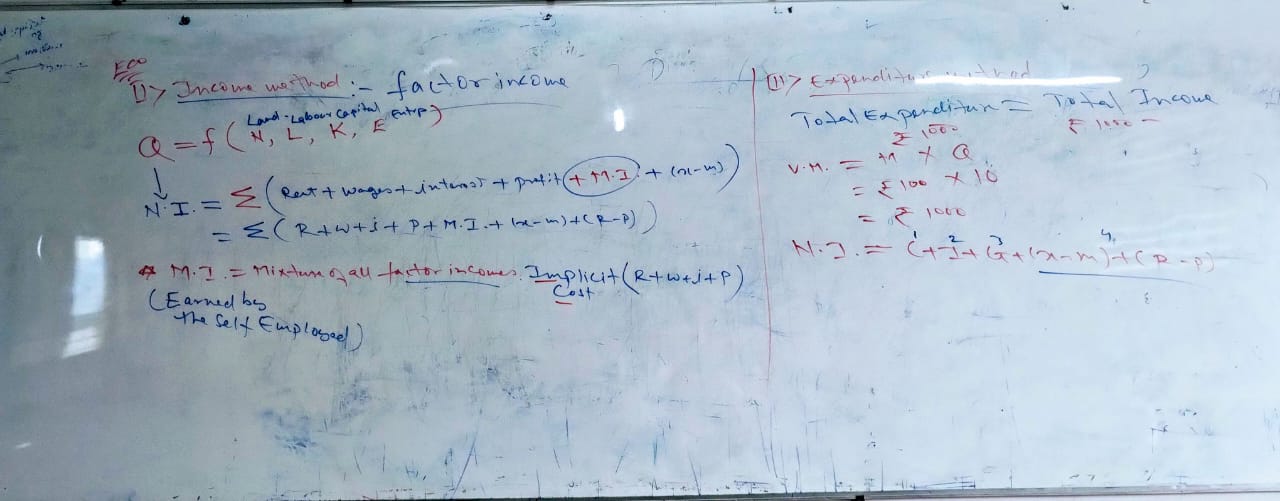 Eco
I)> Income method :- factor income
Land Labour Capital Entrp
Q = f (N, L, K, E)
↓
N.I. = Σ (Rent + wages + interest + profit + M.I. + (x-m))
= Σ ( R+w+i + P + M.I. + (x-m) + (R-P) )
* M.I. = Mixture of all factor incomes. Implicit (R+w+i+P)
Cost
(Earned by
the Self Employed)
II)> Expenditure method
Total Expenditure = Total Income
₹ 1000 ₹ 1000
V.M. = M x Q
= ₹ 100 x 10
= ₹ 1000
1 2 3 4
N.I. = C+I+G+(x-m)+(R-P)